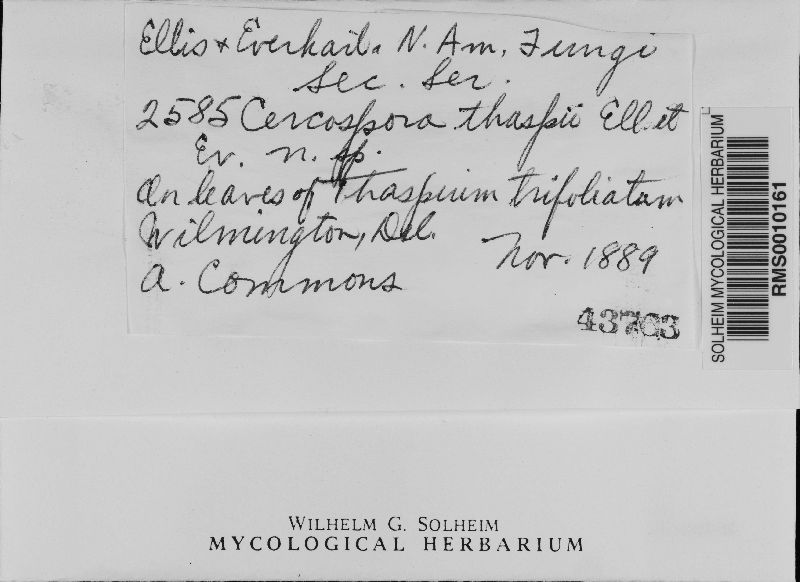 Ellis & Everhart. N. Am. Fungi
Sec. Ser.
2585 Cercospora thaspii Ell. et
Ev. n. sp.
On leaves of Thaspium trifoliatum
Wilmington, Del.
Nov. 1889
A. Commons
43763
SOLHEIM MYCOLOGICAL HERBARIUM
RMS0010161
WILHELM G. SOLHEIM
MYCOLOGICAL HERBARIUM